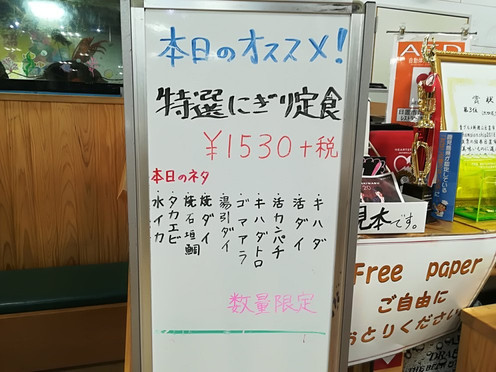 本日のオススメ!
特選にぎり定食
¥1530+税
本日のネタ
・キハダ
・活ダイ
・活カンパチ
・キハダトロ
・ゴマアラ
・湯引ダイ
・焼ダイ
・焼石垣鯛
・タカエビ
・水イカ
数量限定
AED
賞状
見本です。
Free paper
ご自由に
おとりください